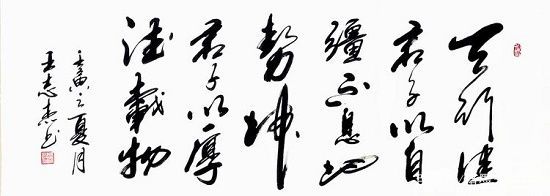 天行健
君子以自
彊不息地
勢坤
君子以厚
德載物
壬寅之夏月
王志杰书